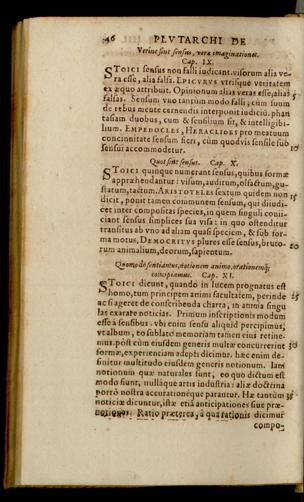 46 PLVTARCHI DE
Verine sint sensus, vera imaginationes.
Cap. IX.
STOICI sensus non falli iudicant. visorum alia ve-
ra esse, alia falsa. EPICVRVS vtrisque veritatem
ex æquo attribuit. Opinionum alias veras esse, alias 5
falsas. Sensum vno tantùm modo falli, cùm suum
de rebus mente cernendis interponit iudiciũ. phan
tasiam duobus, cum & sensilium sit, & intelligibi-
lium. EMPEDOCLES, HERACLIDES pro meatuum
concinnitate sensum fieri, cùm quodvis sensile sub
sensui accommodetur.
Quot sint sensus. Cap. X.
STOICI quinque numerant sensus, quibus formæ
appræhendantur: visum, auditum, olfactum, gu-
stum, tactum. ARISTOTELES sextum quidem non 15
dicit, ponit tamen communem sensum, qui diiudi-
cet inter compositas species, in quem singuli conii-
ciant sensus simplices sua visa: in quo ostenditur
transitus ab vno ad aliam quasi speciem, & sub for-
ma motus. DEMOCRITVS plures esse sensus, bruto- 20
rum animalium, deorum, sapientum.
Quomodo sentiamus, notionem animo, orationemq́;
concipiamus. Cap. XI.
STOICI dicunt, quando in lucem prognatus est
homo, tum principem animi facultatem, perinde 25
ac si ageret de conscribenda charta, in animia singu
las exarare noticias. Primum inscriptionis modum
esse à sensibus: vbi enim sensu aliquid percipimus,
vt album, eo sublato memoriam tamen eius retine-
mus. pòst cùm eiusdem generis multæ concurrerint 30
formæ, experientiam adepti dicimur. hæc enim de-
finitur multitudo eiusdem generis notionum. Iam
notionum quæ naturales sunt, eo quo dictum est
modo fiunt, nullâque artis industria: aliæ doctrina
porrò nostra accurationéque parantur. Hæ tantùm 35
noticiæ dicuntur, istæ etiã anticipationes siue præ-
notiones. Ratio præterea, à qua rationis dicimur
compo-